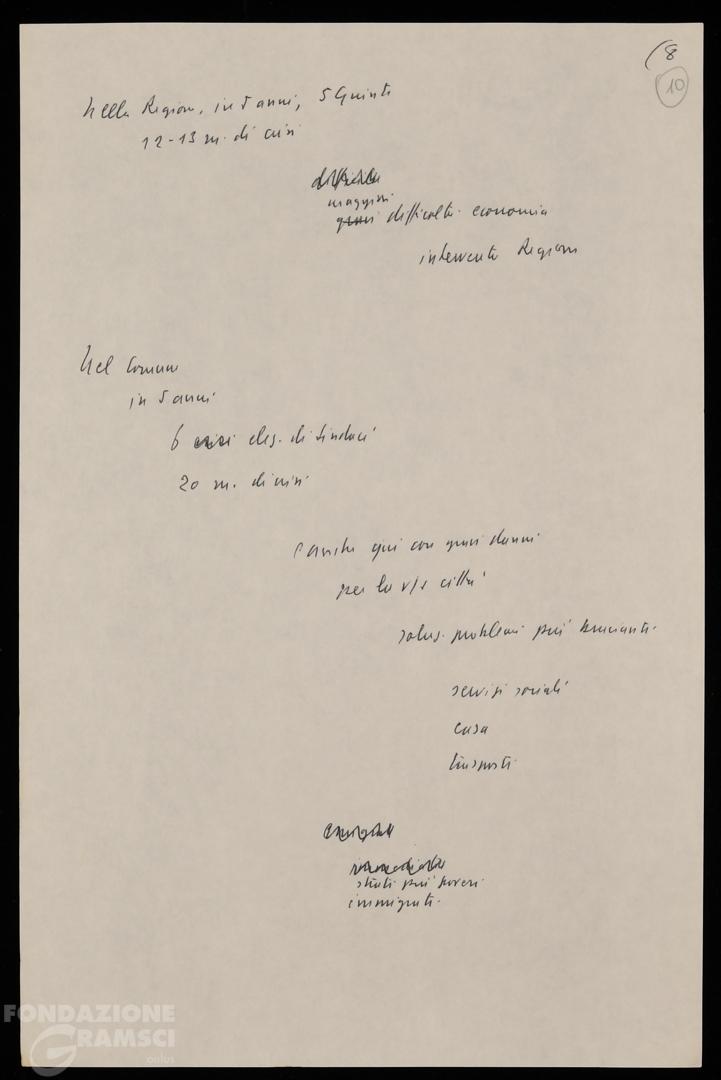 (8
10
Nella Regione, in 5 anni, 5 Giunte
12-13 m. di crisi
difficile
maggiori
gravi difficoltà economia
intervento Regione
Nel Comune
in 5 anni
6 crisi elez. di Sindaci
20 m. di crisi
e anche qui con gravi danni
per la v/s città
soluz. problemi più brucianti
servizi sociali
casa
trasporti
immediata
strati più poveri
immigrati
FONDAZIONE
GRAMSCI
onlus